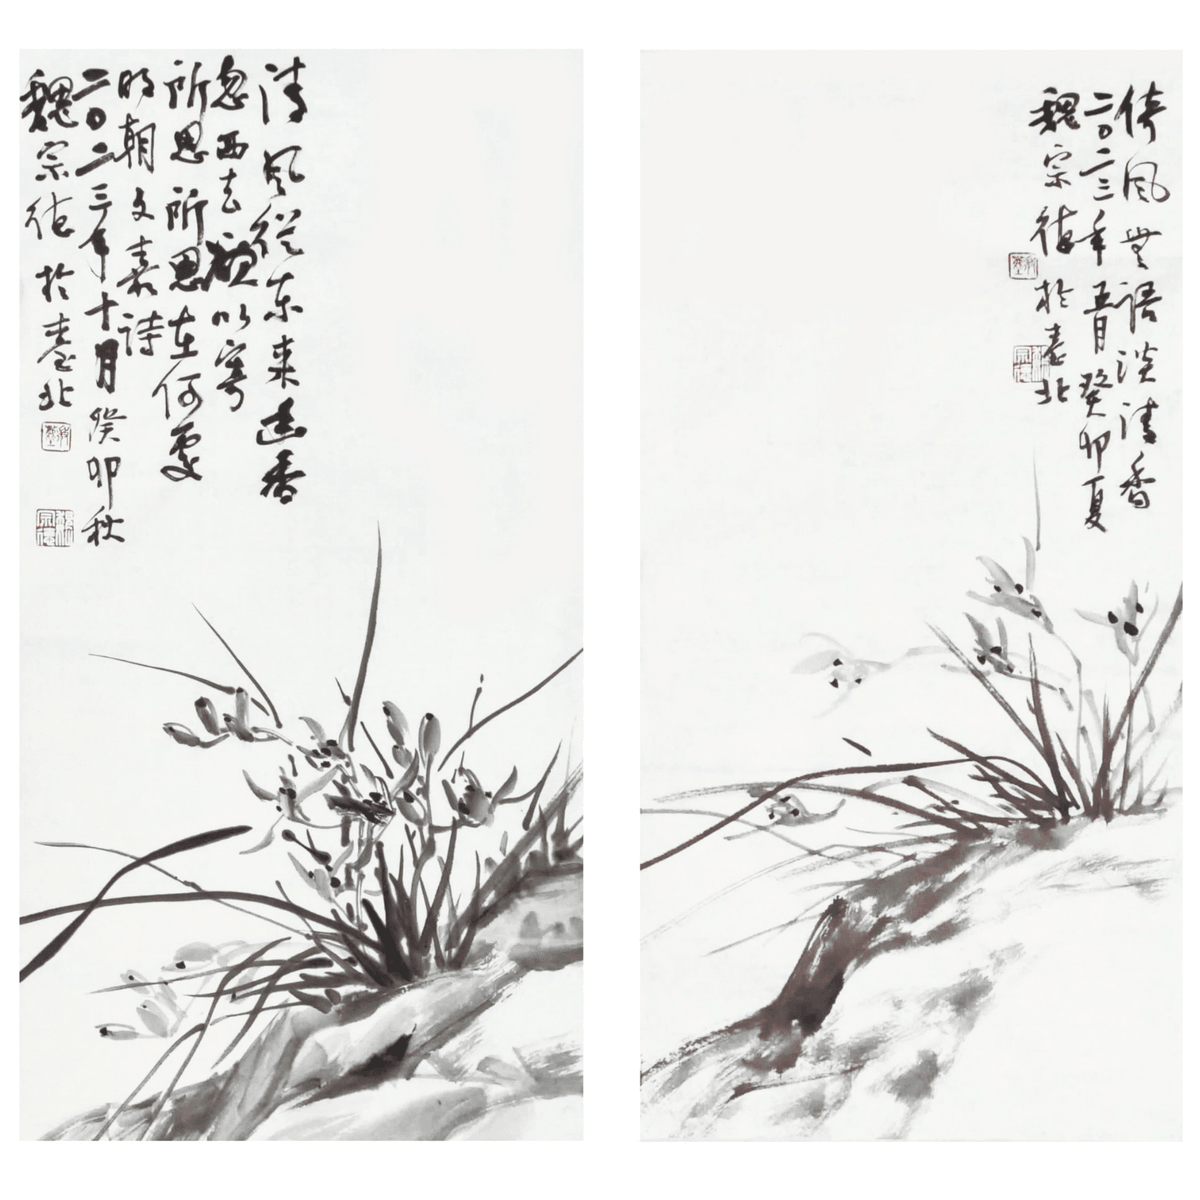 清風從東來幽香
忽西去欲以寄
所思所思在何處
明朝文嘉詩
二〇二三年十月癸卯秋
魏宗德於臺北
倚風無語淡清香
二〇二三年五月癸卯夏
魏宗德於臺北